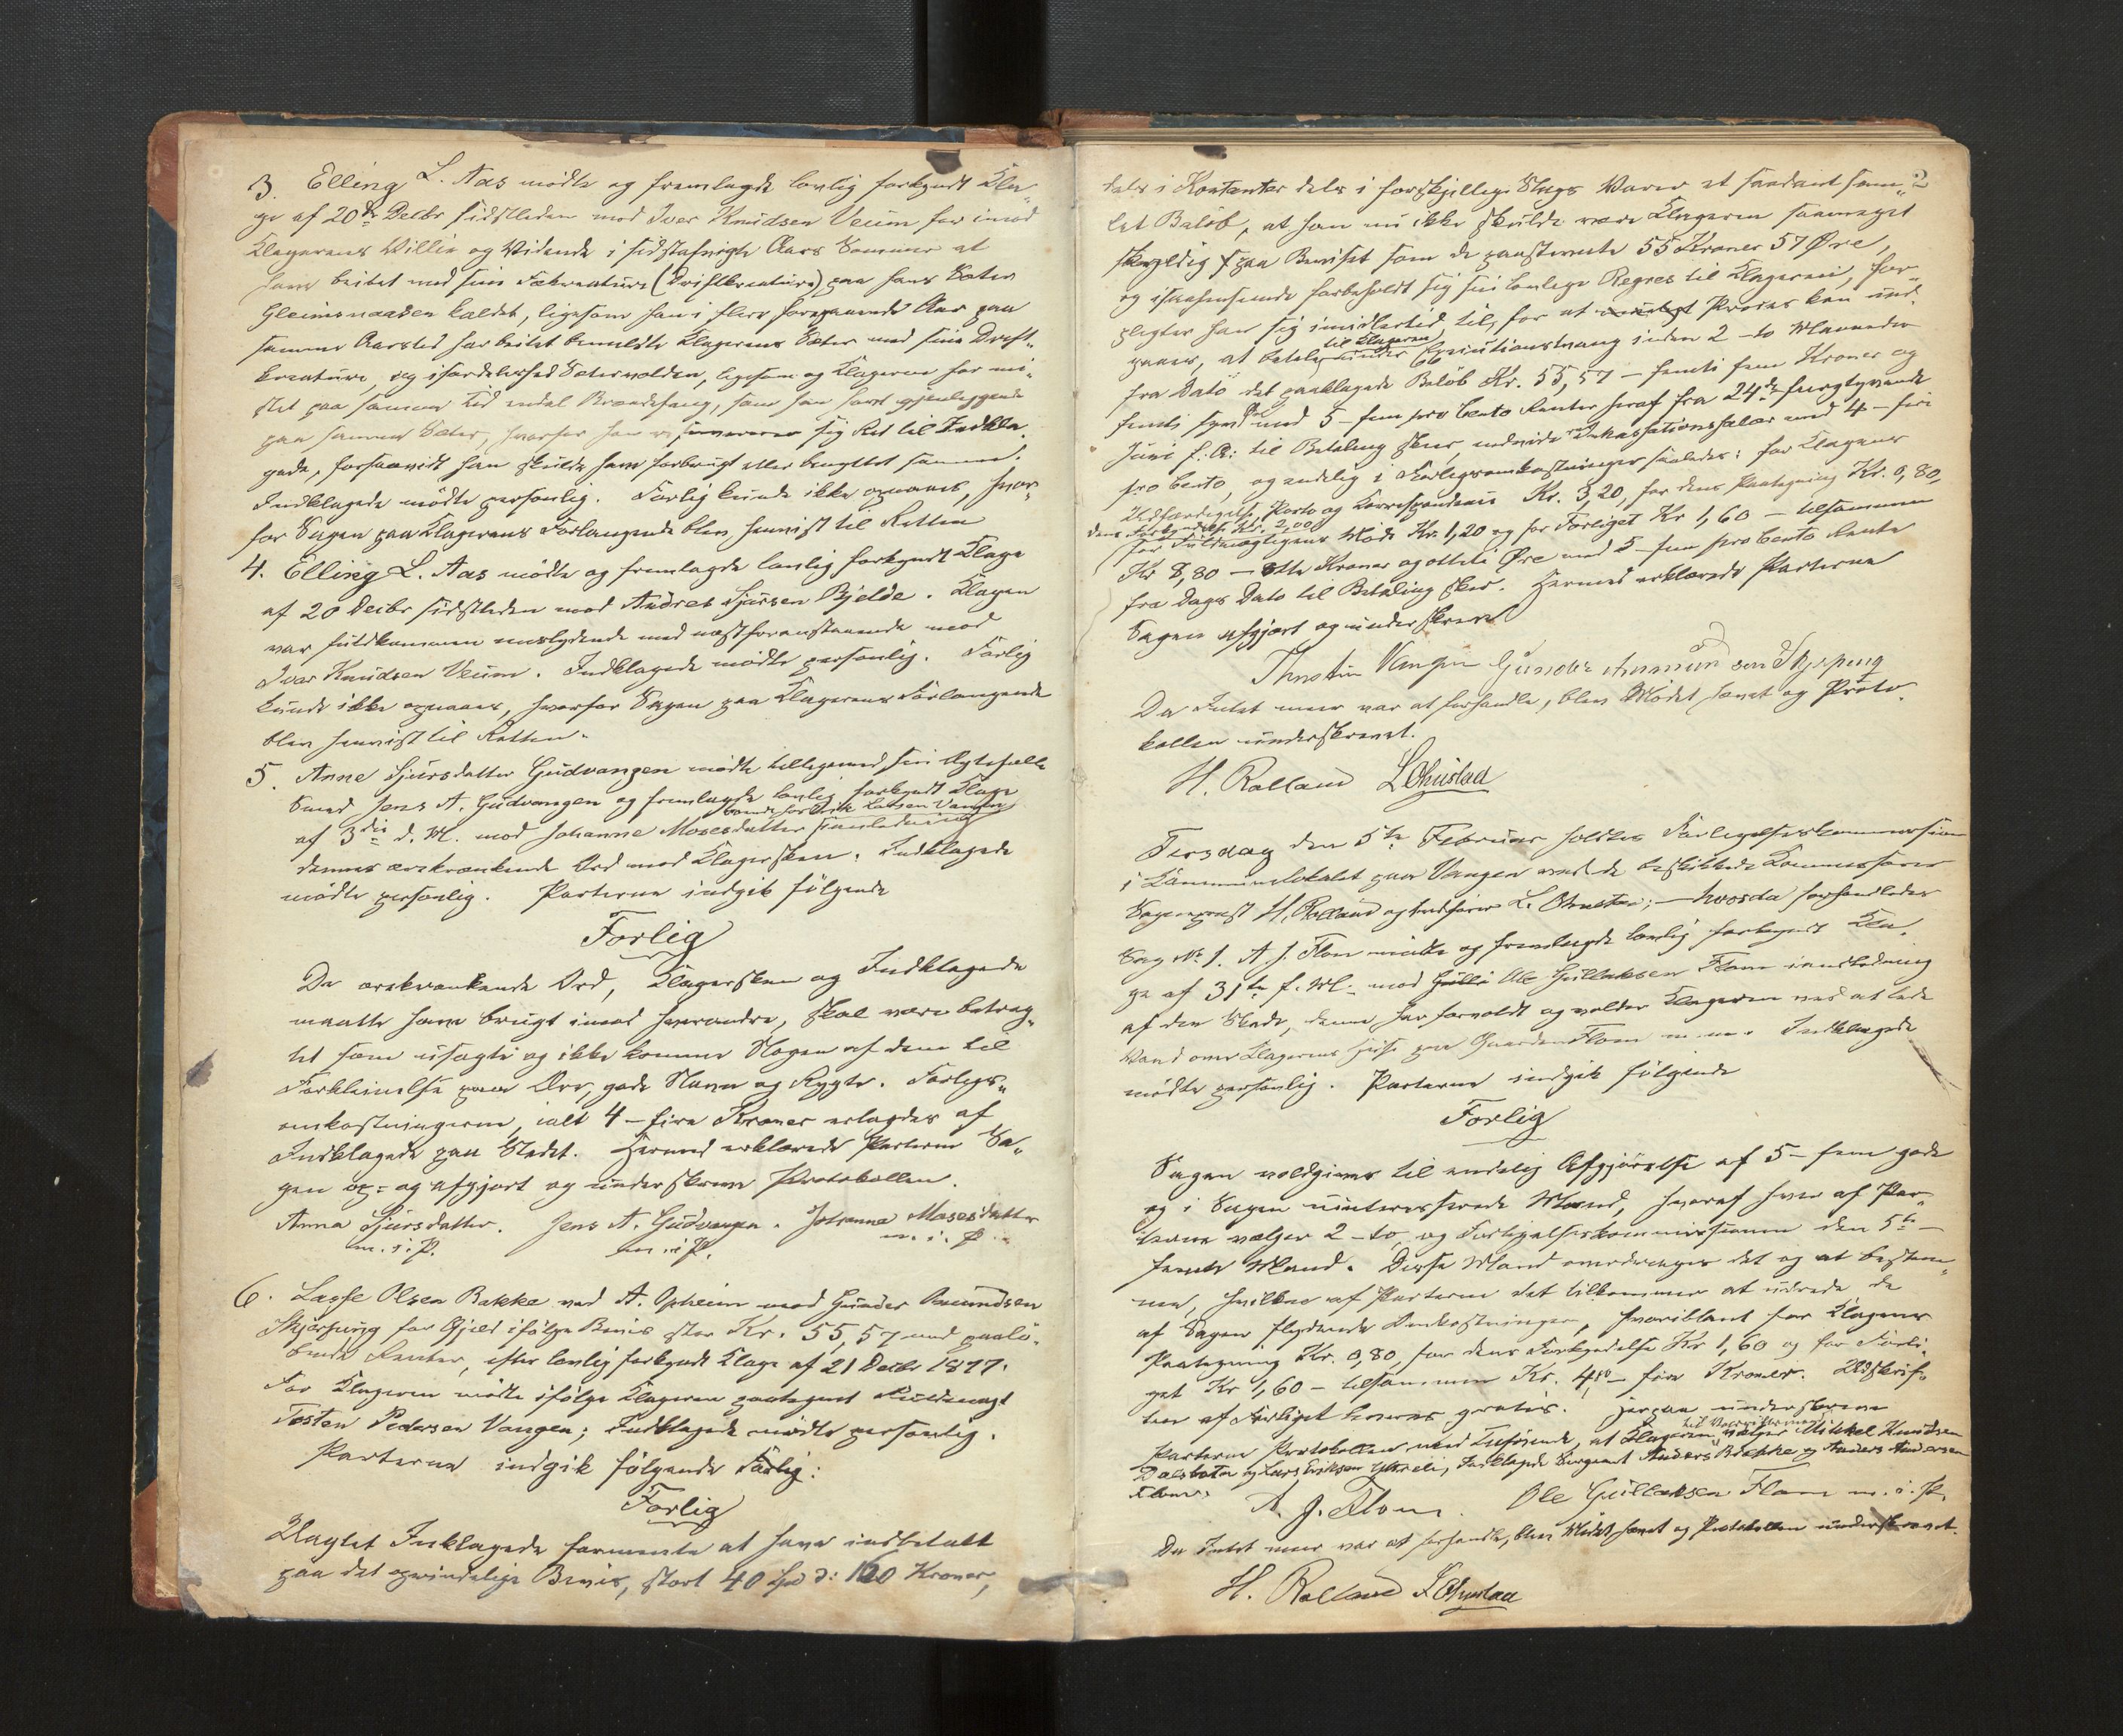 3. Elling L. Aas mødte og fremlagde lovlig forkyndt Kla„
ge af 20de Decbr sidstleden mod Iver Knudsen Veum for imod
Klagerens Villie og Vidende i sidstafvigte Aars Sommer at
have beitet med sine Fækreature (Driftkreature) paa hans Sæter
Gleimsnaaden kaldet, ligesom han i flere foregaaende Aar paa
samme Aarstid har beitet bemeldte Klagerens Sæter med sine Drift„
kreature, og isærdeleshed Sætervolden, ligesom og Klageren har mi„
stet paa samme Tid endel Brændefang, som han havde igjenliggende
paa samme Sæter, hvorfor han reserverer sig Ret til Indkla„
gede, forsaavidt han skulde have forbrugt eller benyttet samme.
Indklagede mødte personlig. Forlig kunde ikke opnaaes, hvor„
for Sagen paa Klagerens Forlangende blev henvist til Retten
4. Elling L. Aas mødte og fremlagde lovlig forkyndt Klage
af 20 Decbr sidstleden mod Andres Sjursen Bjelde. Klagen
var fuldkommen enslydende med næstforanstaaende mod
Iver Knudsen Veum. Indklagede mødte personlig. Forlig
kunde ikke opnaaes, hvorfor Sagen paa Klagerens Forlangende
blev henvist til Retten.
5. Anne Sjursdatter Gudvangen mødte tilligemed sin Ægtefælle
Smed Jens A. Gudvangen og fremlagde lovlig forkyndt Klage
af 3die d. M. mod Johanne Mosesdatter i anledning
dennes ærekrænkende Ord mod Klagersken. Indklagede
mødte personlig. Parterne indgik følgende
Forlig
De ærekrænkende Ord, Klagersken og Indklagede
maatte have brugt imod hverandre, skal være betrag„
tet som usagte og ikke komme Nogen af dem til
Forkleinelse paa Ære, gode Navn og Rygte. Forligs„
omkostningerne, ialt 4 – fire Kroner erlagdes af
Indklagede paa Stedet. Hermed erklærede Parterne Sa„
gen op- og afgjort og underskrev Protokollen.
Anna Sjursdatter. Jens A. Gudvangen. Johanne Mosesdatter
m. i. P. m. i. P. m. i. P.
6. Lasse Olsen Bakke ved A. Opheim mod Gunder Amundsen
Skjerping for Gjæld ifølge Bevis stor Kr. 55,57 med paalø„
bende Renter, efter lovlig forkyndt Klage af 21 Decbr 1877.
For Klageren mødte ifølge Klageren paategnet Fuldmagt
Tosten Pedersen Vangen; Indklagede mødte personlig.
Parterne indgik følgende Forlig:
Forlig
Uagtet Inklagede formente at have indbetalt
paa det oprindelige Bevis, stort 40 Spd ɔ: 160 Kroner,
2
dels i Kontanter dels i forskjellige Slags Varer et saadant sam„
let Beløb, at han nu ikke skulde være Klageren saameget
skyldig paa Beviset som de paastevnte 55 Kroner 57 Øre,
og isaahenseende forbeholdt sig sin lovlige Regres til Klageren, for„
pligter han sig imidlertid til, for at undgaa Proces kan und„
gaaes, at betale til Klageren under Executionstvang inden 2 – to Maaneder
fra Dato det paaklagede Beløb Kr. 55,57 – femti fem Kroner og
femti syv Øre med 5 – fem pro Cento Renter heraf fra 24de – fire og tyvende
Juni f. A. til Betaling skeer, endvidere Inkassationssalær med 4 – fire
pro Cento, og endelig i Forligsomkostninger saaledes: for Klagens
Udfærdigelse, Porto og Correspondence Kr. 3,20, for dens Paategning Kr. 0,80,
dens Forkyndelse Kr. 2,00
for Fuldmægtigens Møde Kr. 1,20 og for Forliget Kr 1,60 – tilsammen
Kr 8,80 – otte Kroner og otteti Øre med 5 – fem pro Cento Rente
fra Dags Dato til Betaling skeer. Hermed erklærede Parterne
Sagen afgjort og underskrev
Thostin Vangen Gunder Amundsen Skjerping
Da Intet mere var at forhandle, blev Mødet hævet og Proto„
kollen underskrevet.
H. Rolland L Ohnstad
Tirsdag den 5te Februar holdtes Forligelseskommission
i Kommunelokalet paa Vangen med de beskikkede Kommissærer
Sogneprest H. Rolland og Landhører L. Ohnstad; – hvorda forhandledes
Sag No 1. A. J. Flom mødte og fremlagde lovlig forkyndt Kla„
ge af 31te f. M. mod Ole Gullaksen Flom i anledning
af den Skade, denne har forvoldt og volder Klageren ved at lede
Vand over Klagerens Jord paa Gaarden Flom m. m. Indklagede
mødte personlig. Parterne indgik følgende
Forlig
Sagen voldgives til endelig Afgjørelse af 5 – fem gode
og i Sagen uinteresserede Mænd, hvoraf hver af Par„
terne vælger 2 – to og Forligelseskommissionen den 5te –
femte Mand. Disse Mænd overdrages det og at bestem„
me, hvilken af Parterne det tilkommer at udrede de
af Sagen flydende Omkostninger, hvoriblant for Klagens
Paategning Kr. 0,80, for dens Forkyndelse Kr 1,60 og for Forli„
get Kr 1,60 – tilsammen Kr. 4,00 – fire Kroner. Udskrif„
ten af Forliget leveres gratis. Herpaa underskrev
Parterne Protokollen med Tilføiende, at Klageren til Voldgiftsmænd vælger Mikkel Knudsen
Dalsbotn og Lars Eriksen , Indklagede Sergeant Anders Brekke og Anders Andersen
Flom.
A. J. Flom. Ole Gullaksen Flom m. i. P.
Da Intet mere var at forhandle, blev Mødet hævet og Protokollen underskrevet.
H. Rolland L Ohnstad